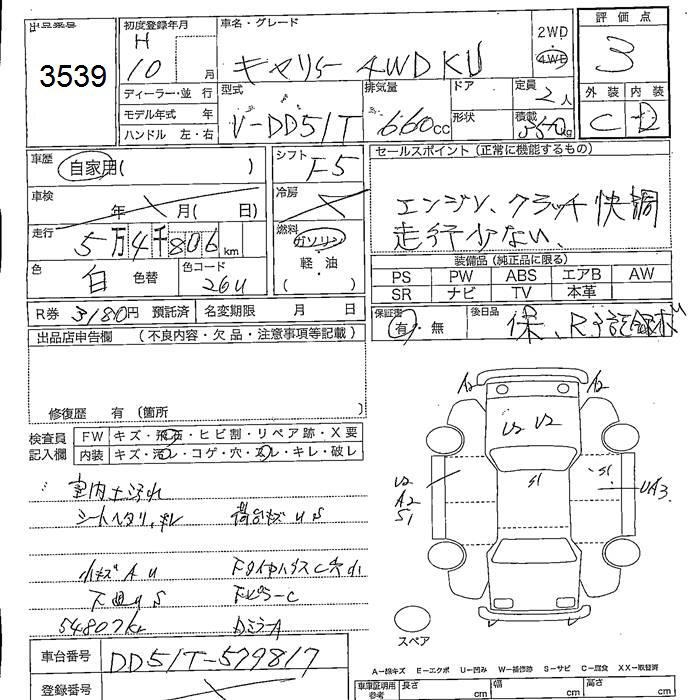 出品番号 初度登録年月 車名・グレード 評価点
3539 H 10 月 キャリー 4WD KU 2WD 4WD 3
ディーラー・並行 型式 排気量 ドア 定員 2人 外装 内装
モデル年式 年 V-DD51T 660cc 形状 積載 350kg C D
ハンドル 左・右
車歴 自家用( ) シフト F5 セールスポイント(正常に機能するもの)
車検 年 月( 日) 冷房 エンジン、クラッチ快調
走行 5万4千806km 燃料 ガソリン 走行少ない、
軽・油 装備品(純正品に限る)
色 白 色替 色コード 26U ( ) PS PW ABS エアB AW
SR ナビ TV 本革
R券 3180円 預託済 名変期限 月 日 保証書 有・無 後日品 保、R
出品店申告欄 (不良内容・欠品・注意事項等記載)
修復歴 有 (箇所 )
検査員 FW キズ・飛石・ヒビ割・リペア跡・X要
記入欄 内装 キズ・汚レ・コゲ・穴・スレ・キレ・破レ
A2 A2
U2 U2
U2 S1 S1
A2 UA3
S1
室内土汚れ
シートヘタリ、キレ 荷台キズ U S
小キズ A U
下廻り S
54807K DミラーA
スペア
車台番号 DD51T-579817
登録番号
A−線キズ E−エクボ U−凹み W−補修跡 S−サビ C−腐食 XX−取替済
車庫証明用参考 長さ cm 幅 cm 高さ cm